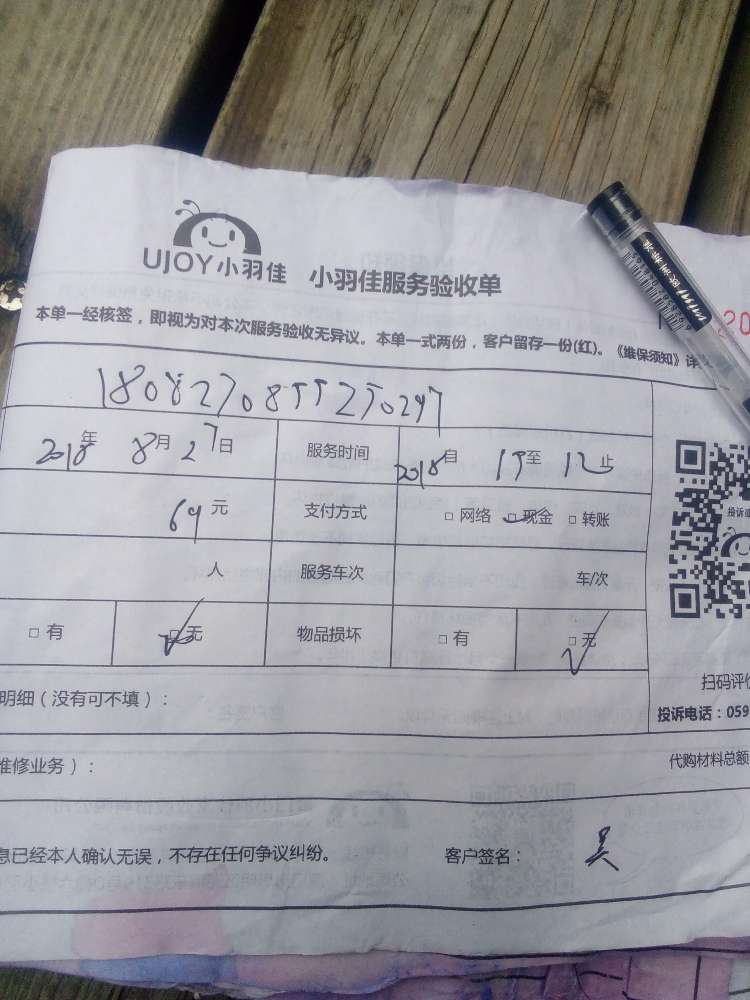 UJOY小羽佳 小羽佳服务验收单
本单一经核签，即视为对本次服务验收无异议。本单一式两份，客户留存一份(红)。《维保须知》详
20
2018年 8月 27日 服务时间 2018自 至 12止
投诉
69元 支付方式 □ 网络 □ 现金 □ 转账
人 服务车次 车/次
□ 有 □ 无 物品损坏 □ 有 □ 无
扫码评价
明细（没有可不填）：
投诉电话：059
维修业务）：
代购材料总额
息已经本人确认无误，不存在任何争议纠纷。 客户签名： 吴